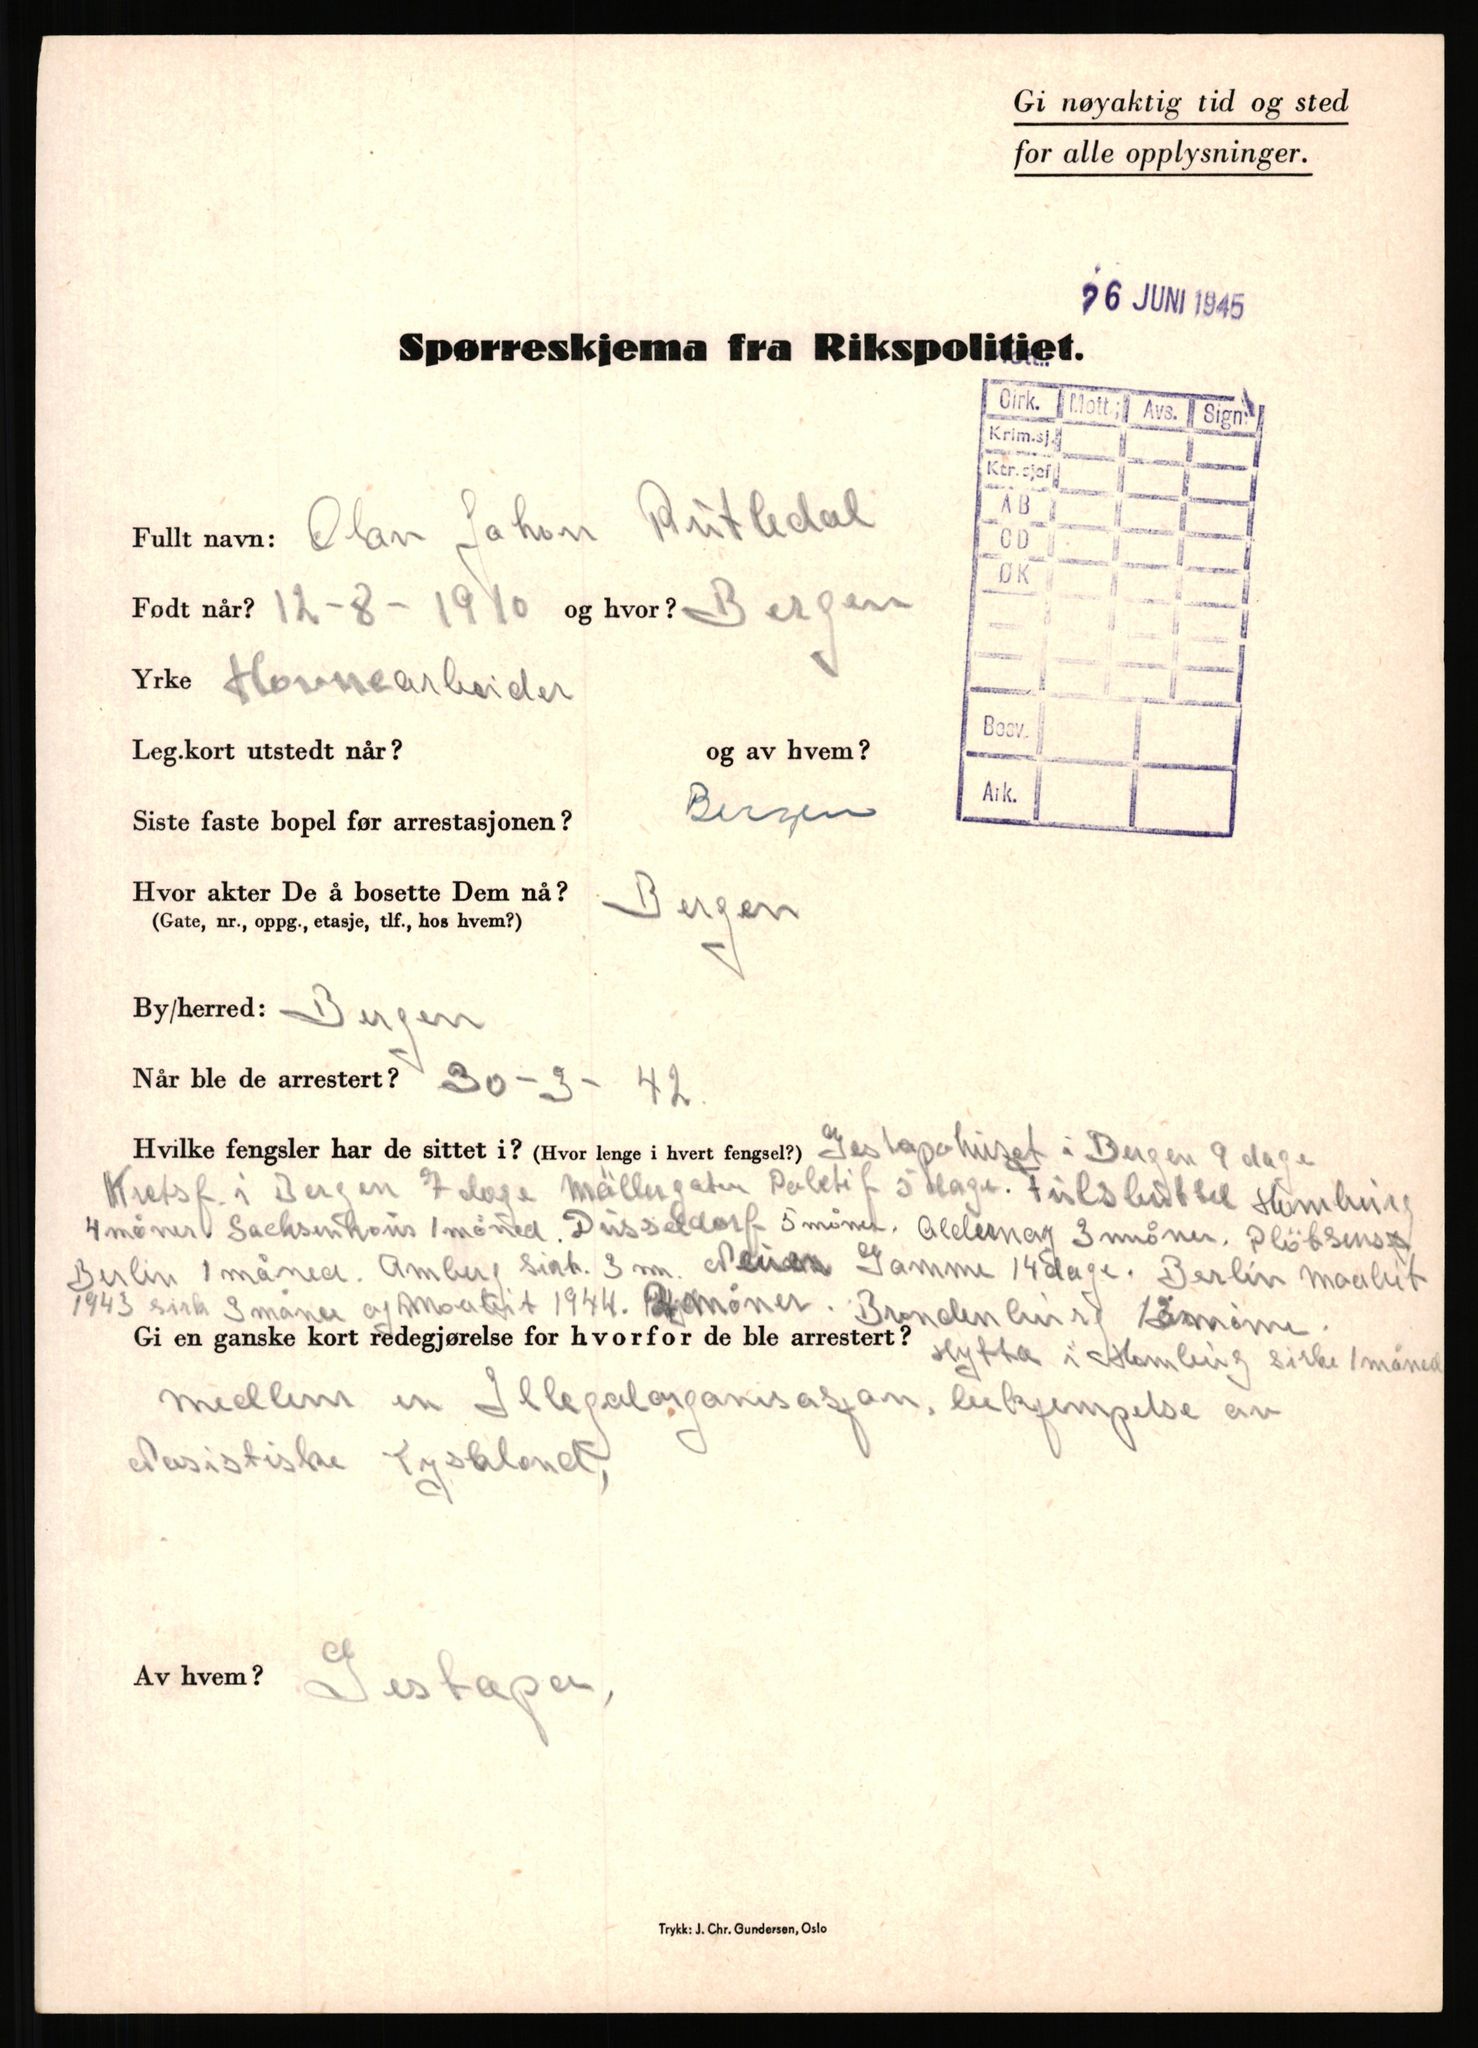 Gi nøyaktig tid og sted
for alle opplysninger.
26 JUNI 1945
Spørreskjema fra Rikspolitiet.
Sirk. Mott.; Avs. Sign:
Krim.sj.
Ktr.sjef
AB
CD
ØK
Besv.
Ark.
Fullt navn: Olav Johan Rutledal
Født når? 12-8-1910 og hvor? Bergen
Yrke Havnearbeider
Leg.kort utstedt når? og av hvem?
Siste faste bopel før arrestasjonen? Bergen
Hvor akter De å bosette Dem nå? Bergen
(Gate, nr., oppg., etasje, tlf., hos hvem?)
By/herred: Bergen
Når ble de arrestert? 30-3-42.
Hvilke fengsler har de sittet i? (Hvor lenge i hvert fengsel?) Gestapohuset i Bergen 9 dage
Kretsf. i Bergen 7 dage Møllergaten 5 dage. Fulsbuttel Hamburg
4 måner Sachsenhaus 1 måned. Dusseldorf 5 måner. Aldernay 3 måner. Plötsens
Berlin 1 måned. Amberg sirk. 3 m. Neuen Gamme 14 dage. Berlin Moabit
1943 sirk 3 måner og Moabit 1944. måner. Brandenburg
Gi en ganske kort redegjørelse for hvorfor de ble arrestert? Hytta i Hamburg sirke 1 måned
medlem en Illegalorganisasjon, bekjempelse av
Nasistiske Tyskland,
Av hvem? Gestapo,
Trykk: J. Chr. Gundersen, Oslo